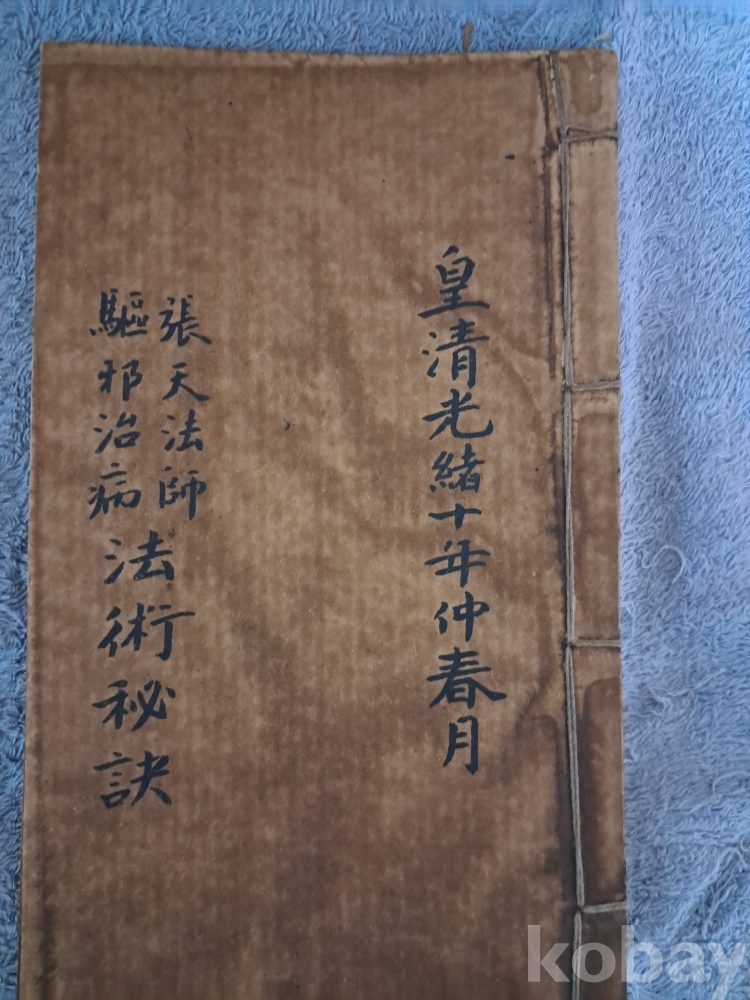 皇清光緒十年仲春月
張天法師
驅邪治病
法術秘訣
kobay